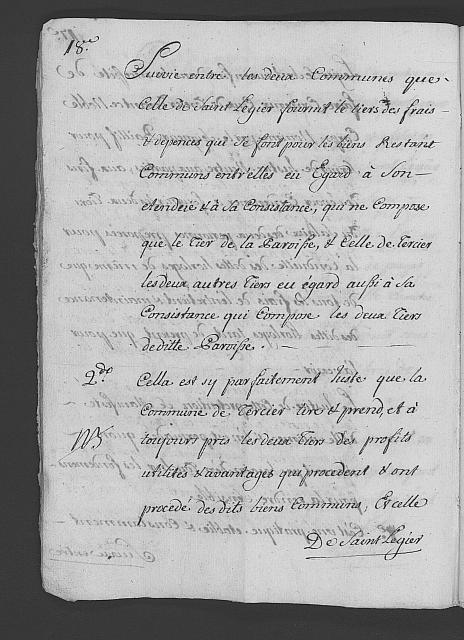 18.e
Suivie entre les deux Communes que
Celle de Saint Legier fournit le tiers des frais
& depences qui Se font pour les biens Restant
Communs entr'elles eu Egard à Son
etendeüe & à Sa Consistance, qui ne Compose
que le Tier de la Paroisse, & Celle de Tercier
les deux autres Tiers eu égard aussi à Sa
Consistance qui Compose les deux Tiers
de ditte Paroisse.
2.do Cella est sy parfaitement Juste que la
Commune de Tercier tire & prend, et à
NB toujour pris les deux Tiers des profits
utilités & avantages qui procedent & ont
procedé des dits biens Communs, Et celle
De Saint Legier